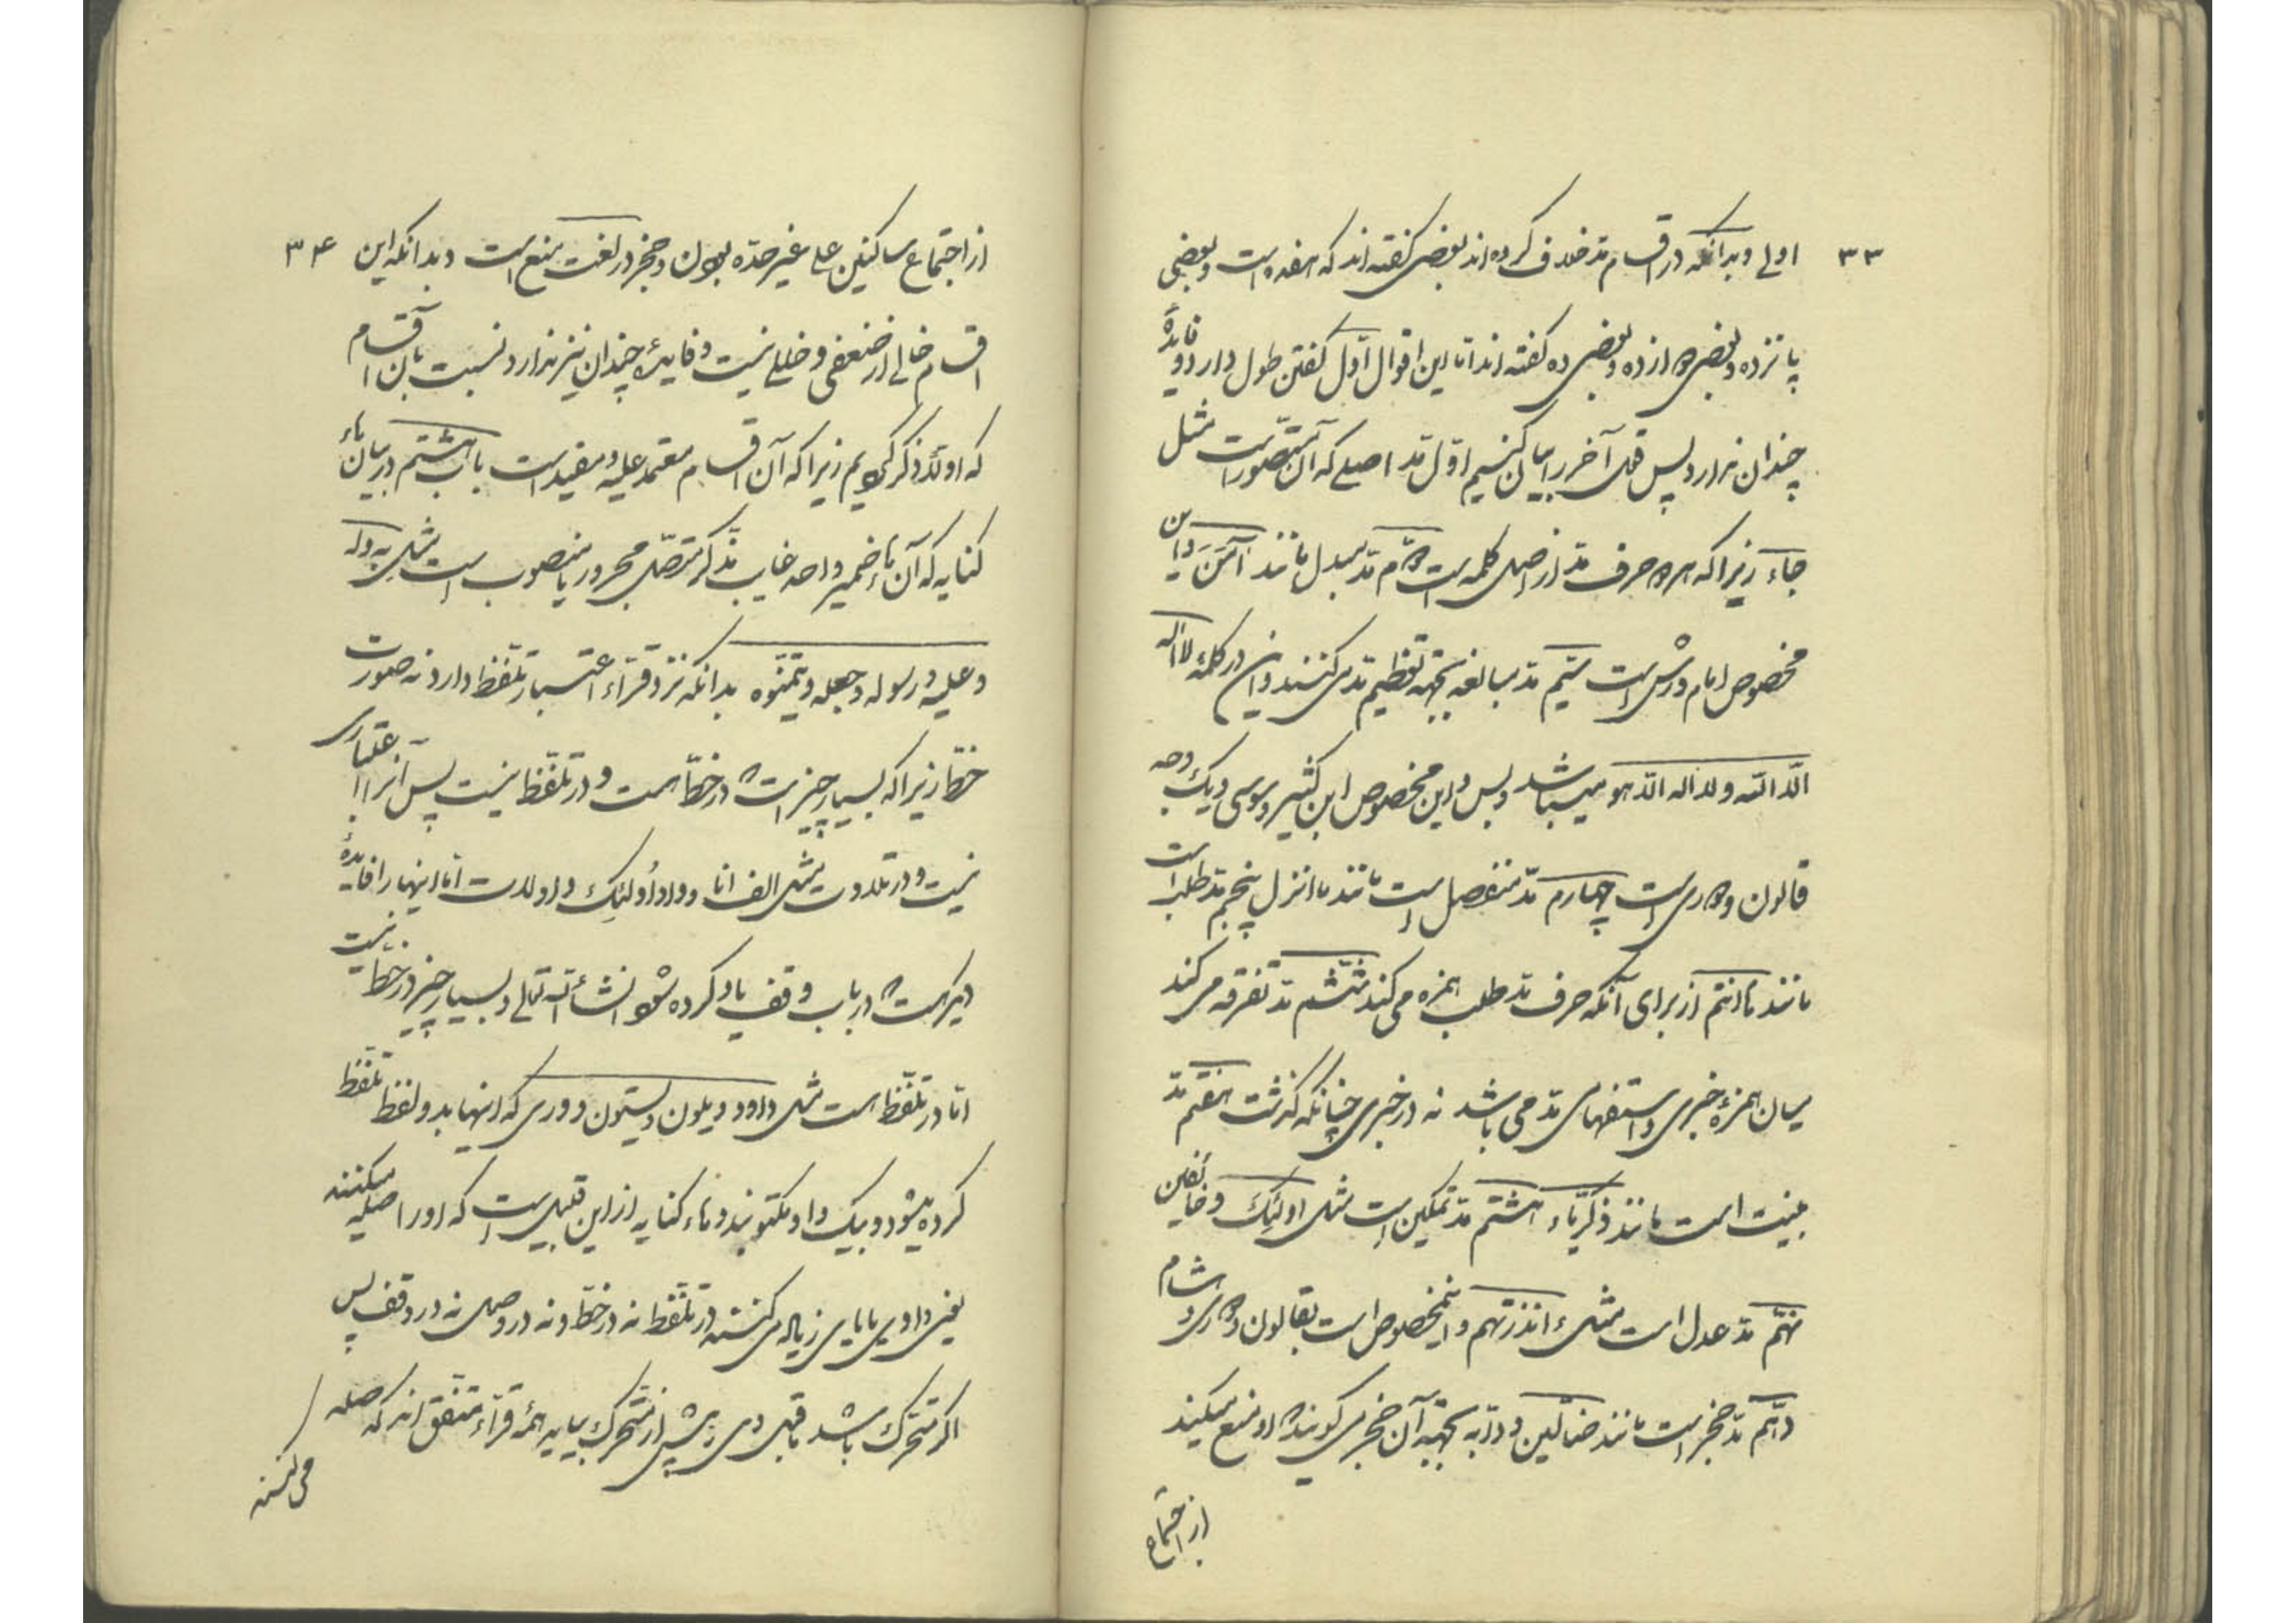 ۳۳
اولی و بدانکه در اقسام مد خلاف کرده اند بعضی گفته اند که هفده است و بعضی
پانزده و بعضی دوازده و بعضی ده گفته اند اما این اقوال اول گفتن طول دارد و فایدۀ
چندان ندارد پس قول آخر را بیان کنیم اول مد اصلی که آن متصور است مثل
جاء زیرا که هر دو حرف مد از اصل کلمه است دوم مد مبدل مانند آمَنَ و این
مخصوص امام ورش است سیم مد مبالغه بجهه تعظیم مد می کنند و آن در کلمۀ لا اله
الا الله و لا اله الا هو میباشد و بس و این مخصوص ابن کثیر و سوسی و یک وجه
قالون و دوری است چهارم مد منفصل است مانند ما انزل پنجم مد طلب است
مانند ما انتم از برای آنکه حرف مد طلب همزه می کند ششم مد تفرقه می کند
میان همزۀ خبری و استفهامی مد می باشد نه در خبری چنانکه گذشت هفتم مد
بنیت است مانند زکریاء هشتم مد تمکین است مثل اولئِکَ و خائفین
نهم مد عدل است مثل ءانذرتهم و مخصوص است بقالون و دوری و هشام
دهم مد حجز است مانند ضالین و دابه بجهه آن حجز می گویند که او منع میکند
از اجتماع
۳۴
از اجتماع ساکنین علی غیر حده بودن و حجز در لغت منع است و بدانکه این
اقسام خالی از ضعفی و خللی نیست و فایدۀ چندان نیز ندارد نسبت بآن اقسام
که اولا ذکر کردیم زیرا که آن اقسام معتمد علیه و مفید است باب هشتم در بیان هاء
کنایه که آن هاء ضمیر واحد غایب مذکر متصل مجرور یا منصوب است مثل به و له
و علیه و رسوله و جعله و یتمنوه بدانکه نزد قراء اعتبار تلفظ دارد نه صورت
خط زیرا که بسیار چیز است که در خط هست و در تلفظ نیست پس آنرا اعتباری
نیست و در تلاوت مثل الف انا و واو اُولئِکَ و اولات اما اینها را فایدۀ
دیگر هست که در باب وقف یاد کرده شود انشاء الله تعالی و بسیار چیز در خط نیست
اما در تلفظ هست مثل داود و یلون و یستون و وری که اینها بدو لفظ تلفظ
کرده میشود و بیک واو مکتوبند و هاء کنایه از این قبیل است که او را صله میکنند
یعنی واوی یا یای زیاده می کنند در تلفظ نه در خط و نه در وصل نه در وقف پس
اگر متحرک باشد ماقبل وی و پیش از متحرک بیاید همۀ قراء متفق اند که صله
می کنند